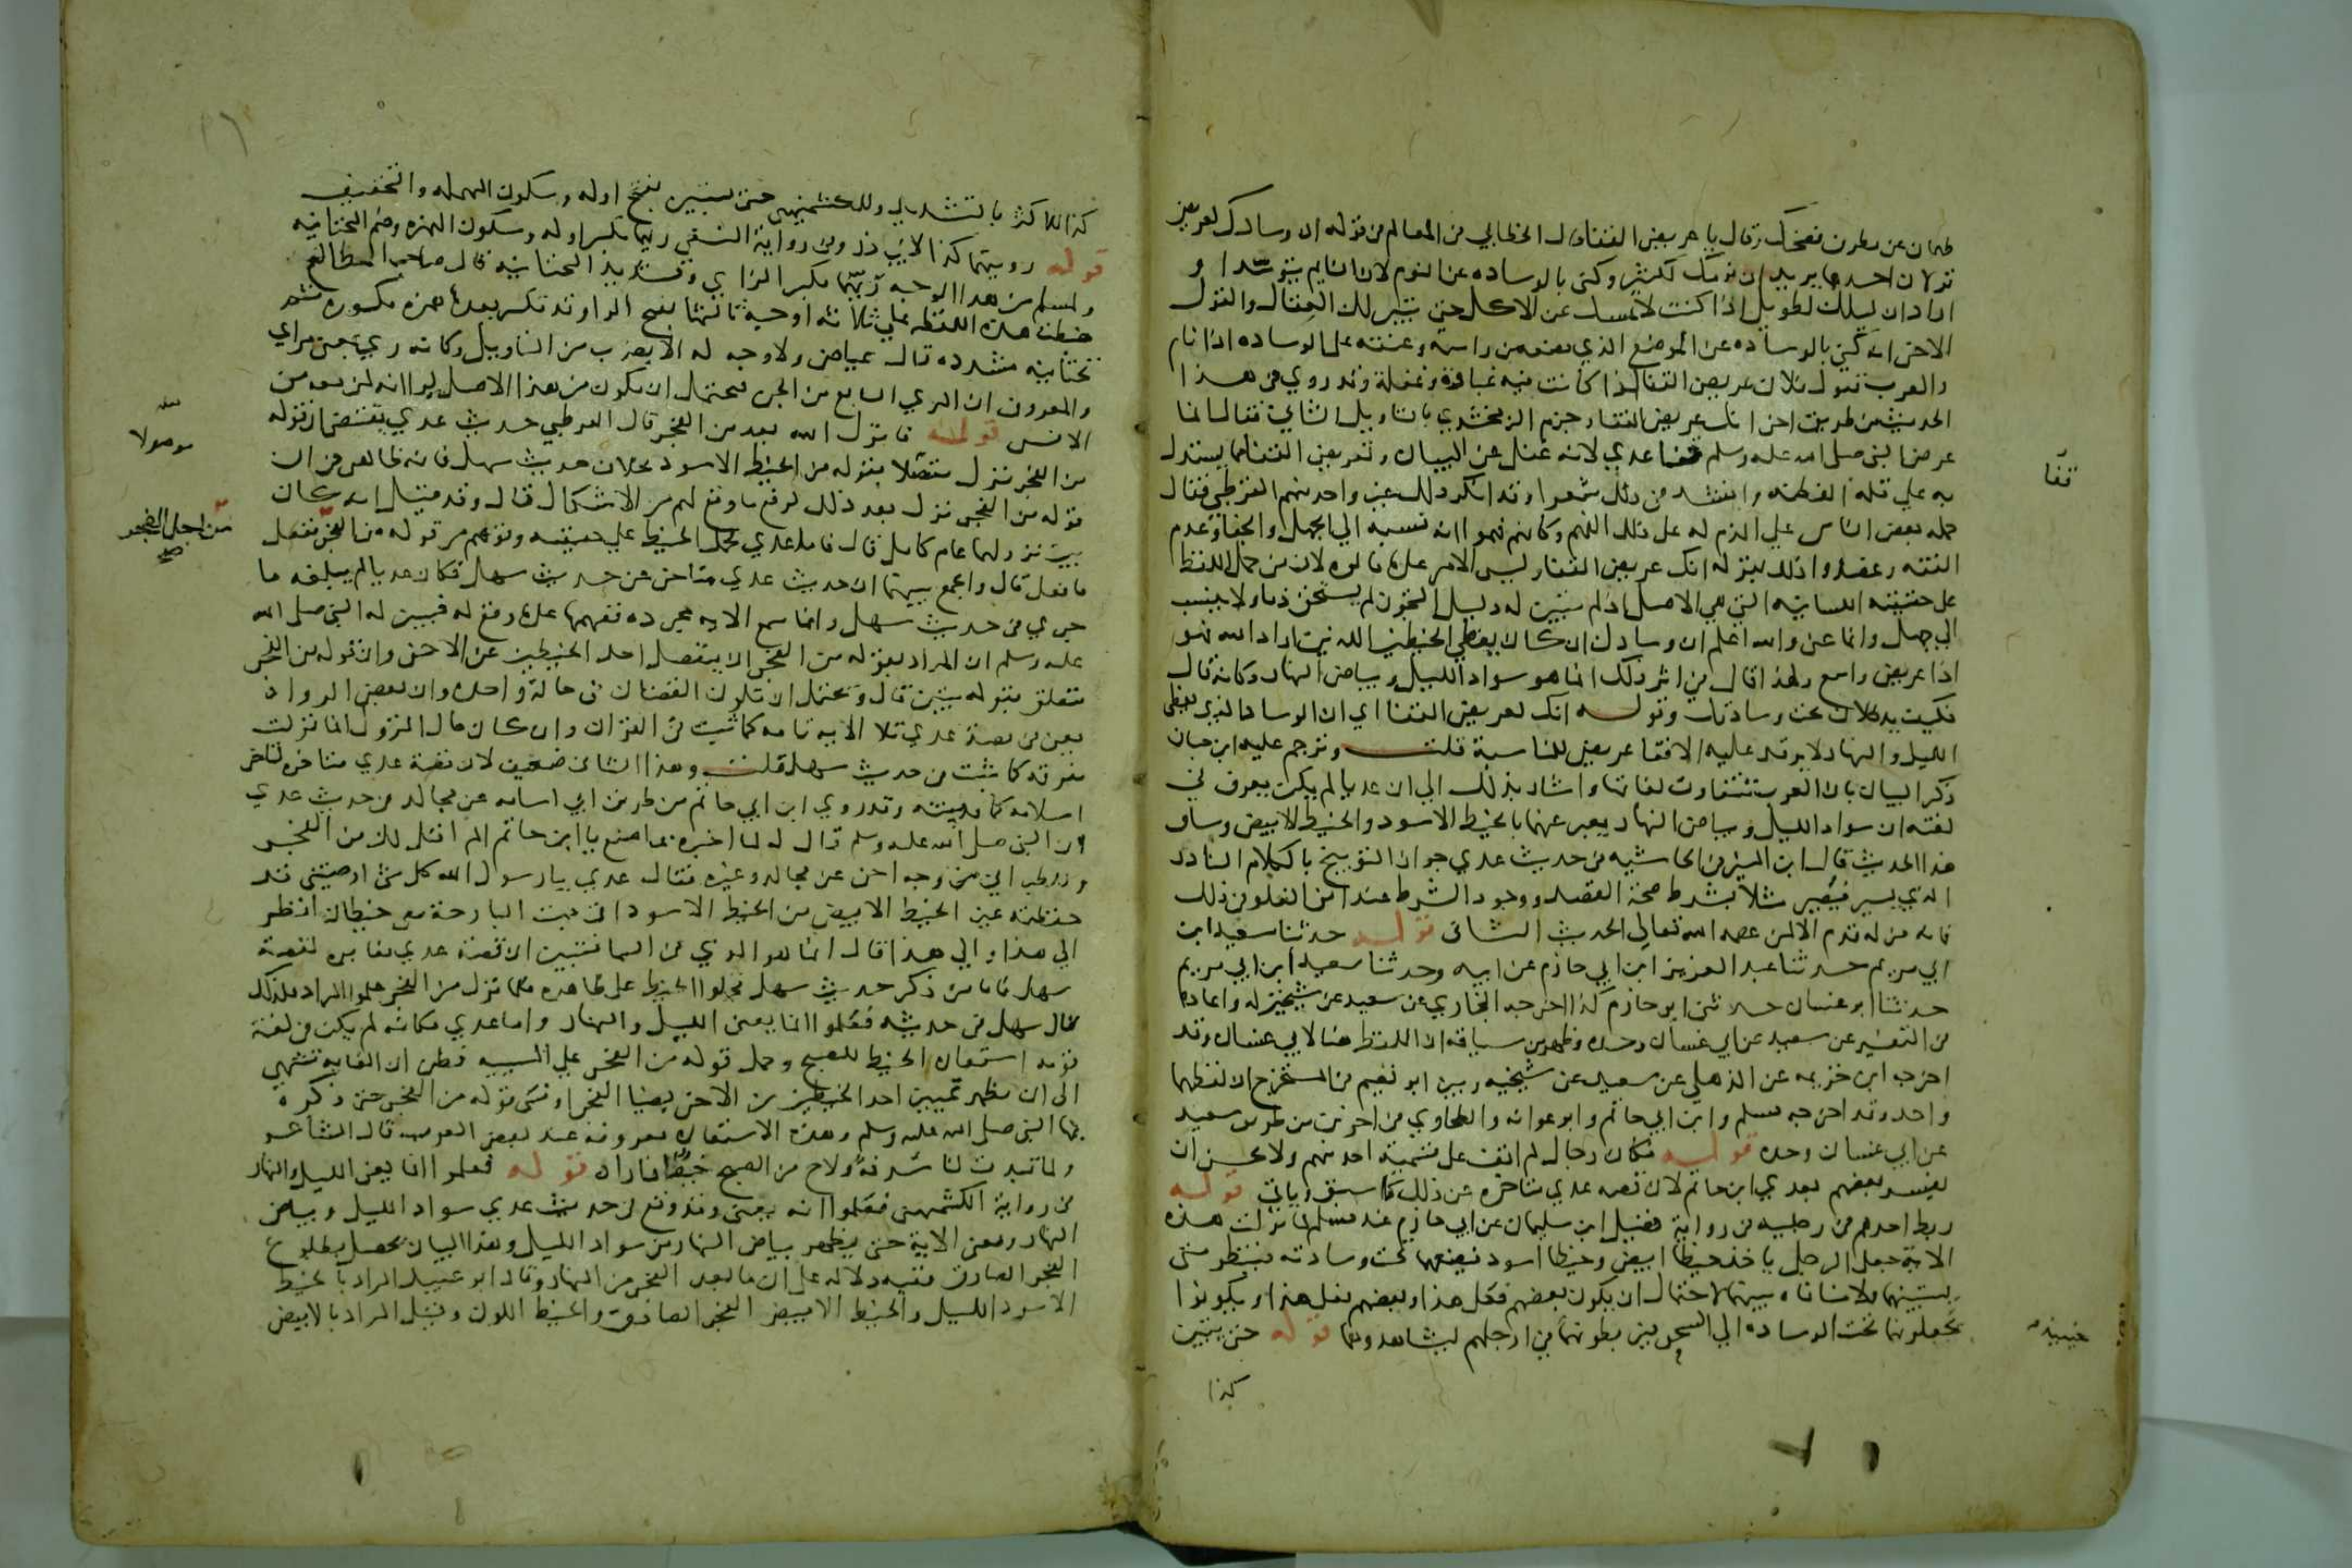 طهمان عن مطرف فضحك وقال يا عريض القفا قال الخطابي في المعالم في قوله ان وسادك لعريض
قولان احدهما يريد ان نومك لكثير وكنى بالوساده عن النوم لان النايم يتوسد او
اراد ان ليلك لطويل اذا كنت لا تمسك عن الاكل حتى يتبين لك العقال والقول
الاخر انه كنى بالوساده عن الموضع الذي يضعه من راسه وعنقه على الوساده اذا نام
والعرب تقول فلان عريض القفا اذا كانت فيه غباوة وغفلة وقد روي في هذا
الحديث من طريق اخرى انك عريض القفا وجزم الزمخشري بالتاويل الثاني فقال انما
عرض النبي صلى الله عليه وسلم قفا عدي لانه غفل عن البيان وتعريض القفا مما يستدل
به على قلة الفطنه وانشد في ذلك شعرا وقد انكر ذلك غير واحد منهم القرطبي فقال
حمله بعض الناس على الذم له على ذلك الفهم وكانهم فهموا انه نسبه الى الجهل والجفا وعدم
الفقه وعضدوا ذلك بقوله انك عريض القفا وليس الامر على ما قالوه لان من حمل اللفظ
على حقيقته اللسانيه التي هي الاصل اذا لم يتبين له دليل التجوز لم يستحق ذما ولا ينسب
الى جهل وانما عنى والله اعلم ان وسادك ان كان يغطي الخيطين اللذين اراد الله فهو
اذا عريض واسع ولهذا قال في اثر ذلك انما هو سواد الليل وبياض النهار وكانه قال
فكيف يدخلان تحت وسادتك وقوله انك لعريض القفا اي ان الوساد الذي يغطي
الليل والنهار لا يرقد عليه الا قفا عريض للمناسبة قلت وترجم عليه ابن حبان
ذكر البيان بان العرب تتفاوت لغاتها واشار بذلك الى ان عديا لم يكن يعرف في
لغته ان سواد الليل وبياض النهار يعبر عنهما بالخيط الاسود والخيط الابيض وساق
هذا الحديث قال ابن المنير في الحاشيه في حديث عدي جواز التوبيخ بالكلام النادر
الذي يسير فيصير مثلا بشرط صحة القصد ووجود الشرط عند امن الغلو في ذلك
فانه مزله قدم الا لمن عصمه الله تعالى الحديث الثاني قوله حدثنا سعيد ابن
ابي مريم حدثنا عبد العزيز ابن ابي حازم عن ابيه وحدثنا سعيد ابن ابي مريم
حدثنا ابو غسان حدثني ابو حازم كذا اخرجه البخاري عن سعيد عن شيخين له واعاده
في التفسير عن سعيد عن ابي غسان وحده وظهر من سياقه ان اللفظ هنا لابي غسان وقد
اخرجه ابن خزيمه عن الذهلي عن سعيد عن شيخيه وبين ابو نعيم في المستخرج ان لفظهما
واحد وقد اخرجه مسلم وابن ابي حاتم وابو عوانه والطحاوي في اخرين من طريق سعيد
عن ابي غسان وحده قوله فكان رجال لم اقف على تسمية احد منهم ولا يحسن ان
يفسر بعضهم بعدي ابن حاتم لان قصه عدي متاخره عن ذلك كما سبق وياتي قوله
ربط احدهم في رجليه في رواية فضيل ابن سليمان عن ابي حازم عند مسلم لما نزلت هذه
الاية جعل الرجل ياخذ خيطا ابيض وخيطا اسود فيضعهما تحت وسادته فينظر متى
يستبينهما ولا منافاه بينهما لاحتمال ان يكون بعضهم فعل هذا وبعضهم فعل هذا او يكونوا
يجعلونهما تحت الوساده الى السحر فيربطونهما في ارجلهم ليشاهدوهما قوله حتى يتبين
كذا
قفا
حينئذ
كذا للاكثر بالتشديد وللكشميهني حتى يستبين بفتح اوله وسكون المهمله والتخفيف
قوله رويتهما كذا لابي ذر وفي رواية النسفي رئيهما بكسر اوله وسكون الهمزه وضم التحتانيه
ولمسلم من هذا الوجه زيهما بكسر الزاي وتشديد التحتانيه قال صاحب المطالع
ضبطت هذه اللفظه على ثلاثه اوجه ثالثها بفتح الراء وقد تكسر بعدها همزه مكسوره ثم
تحتانيه مشدده قال عياض ولا وجه له الا بضرب من التاويل وكانه ري بمعنى مرئي
والمعروف ان الري التابع من الجن فيحتمل ان يكون من هذا الاصل لترائيه لمن معه من
الانس قوله فانزل الله بعد من الفجر قال القرطبي حديث عدي يقتضي ان قوله
من الفجر نزل متصلا بقوله من الخيط الاسود بخلاف حديث سهل فانه ظاهر في ان
قوله من الفجر نزل بعد ذلك لرفع ما وقع لهم من الاشكال قال وقد قيل انه كان
بين نزولهما عام كامل قال فاما عدي فحمل الخيط على حقيقته وفهم من قوله من الفجر ففعل
ما فعل قال والجمع بينهما ان حديث عدي متاخر عن حديث سهل فكان عديا لم يبلغه ما
جرى في حديث سهل وانما سمع الايه مجرده ففهمها على ما وقع له فبين له النبي صلى الله
عليه وسلم ان المراد بقوله من الفجر ان ينفصل احد الخيطين عن الاخر وان قوله من الفجر
متعلق بقوله يتبين قال ويحتمل ان تكون القصتان في حالة واحده وان بعض الرواة
يعني في قصة عدي تلا الايه تامه كما ثبت في القران وان كان حال النزول انما نزلت
مفرقه كما ثبت في حديث سهل قلت وهذا الثاني ضعيف لان قصة عدي متاخره لتاخر
اسلامه كما قدمته وقد روى ابن ابي حاتم من طريق ابي اسامه عن مجالد في حديث عدي
ان النبي صلى الله عليه وسلم قال له لما اخبره بما صنع يا ابن حاتم الم اقل لك من الفجر
وللطبراني من وجه اخر عن مجالد وغيره فقال عدي يا رسول الله كل شي اوصيتني قد
حفظته غير الخيط الابيض من الخيط الاسود اني بت البارحة معي خيطان انظر
الى هذا والى هذا قال انما هو الذي في السما فتبين ان قصة عدي مغايره لقصة
سهل فاما من ذكر في حديث سهل فحملوا الخيط على ظاهره فلما نزل من الفجر علموا المراد فلذلك
قال سهل في حديثه فعلموا انما يعني الليل والنهار واما عدي فكانه لم يكن في لغة
قومه استعاره الخيط للصبح وحمل قوله من الفجر على السببيه فظن ان الغايه تنتهي
الى ان يظهر تمييز احد الخيطين من الاخر بضيا الفجر او نسي قوله من الفجر حتى ذكره
بها النبي صلى الله عليه وسلم وهذه الاستعاره معروفه عند بعض العرب قال الشاعر
ولما تبدت لنا سدفة ولاح من الصبح خيط انارا قوله فعلموا انما يعني الليل والنهار
في رواية الكشميهني فعلموا انه يعني وقد وقع في حديث عدي سواد الليل وبياض
النهار ومعنى الاية حتى يظهر بياض النهار من سواد الليل وهذا البيان يحصل بطلوع
الفجر الصادق ففيه دلاله على ان ما بعد الفجر من النهار وقال ابو عبيد المراد بالخيط
الاسود الليل والخيط الابيض الفجر الصادق والخيط اللون وقيل المراد بالابيض
موصولا
من اجل الفجر